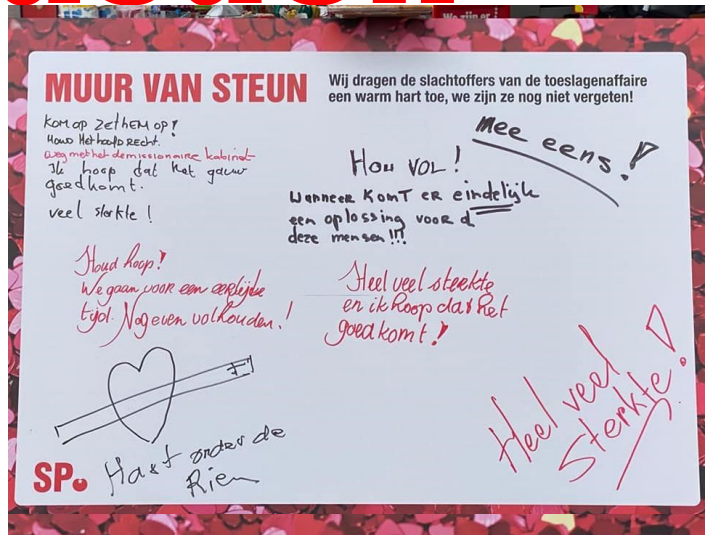 MUUR VAN STEUN
Wij dragen de slachtoffers van de toeslagenaffaire
een warm hart toe, we zijn ze nog niet vergeten!
Kom op zet hem op!
Houd Het hoofd Recht.
weg met het demissionaire kabinet
Ik hoop dat het gauw
goed komt.
veel sterkte !
Mee eens!
Hou VOL !
Wanneer KomT ER eindelijk
een oplossing voor d
deze mensen !!!
Houd hoop!
We gaan voor een eerlijke
tijd. Nog even volhouden!
Heel veel sterkte
en ik hoop dat het
goed komt!
Heel veel
Sterkte!
Hart onder de
Riem
SP.